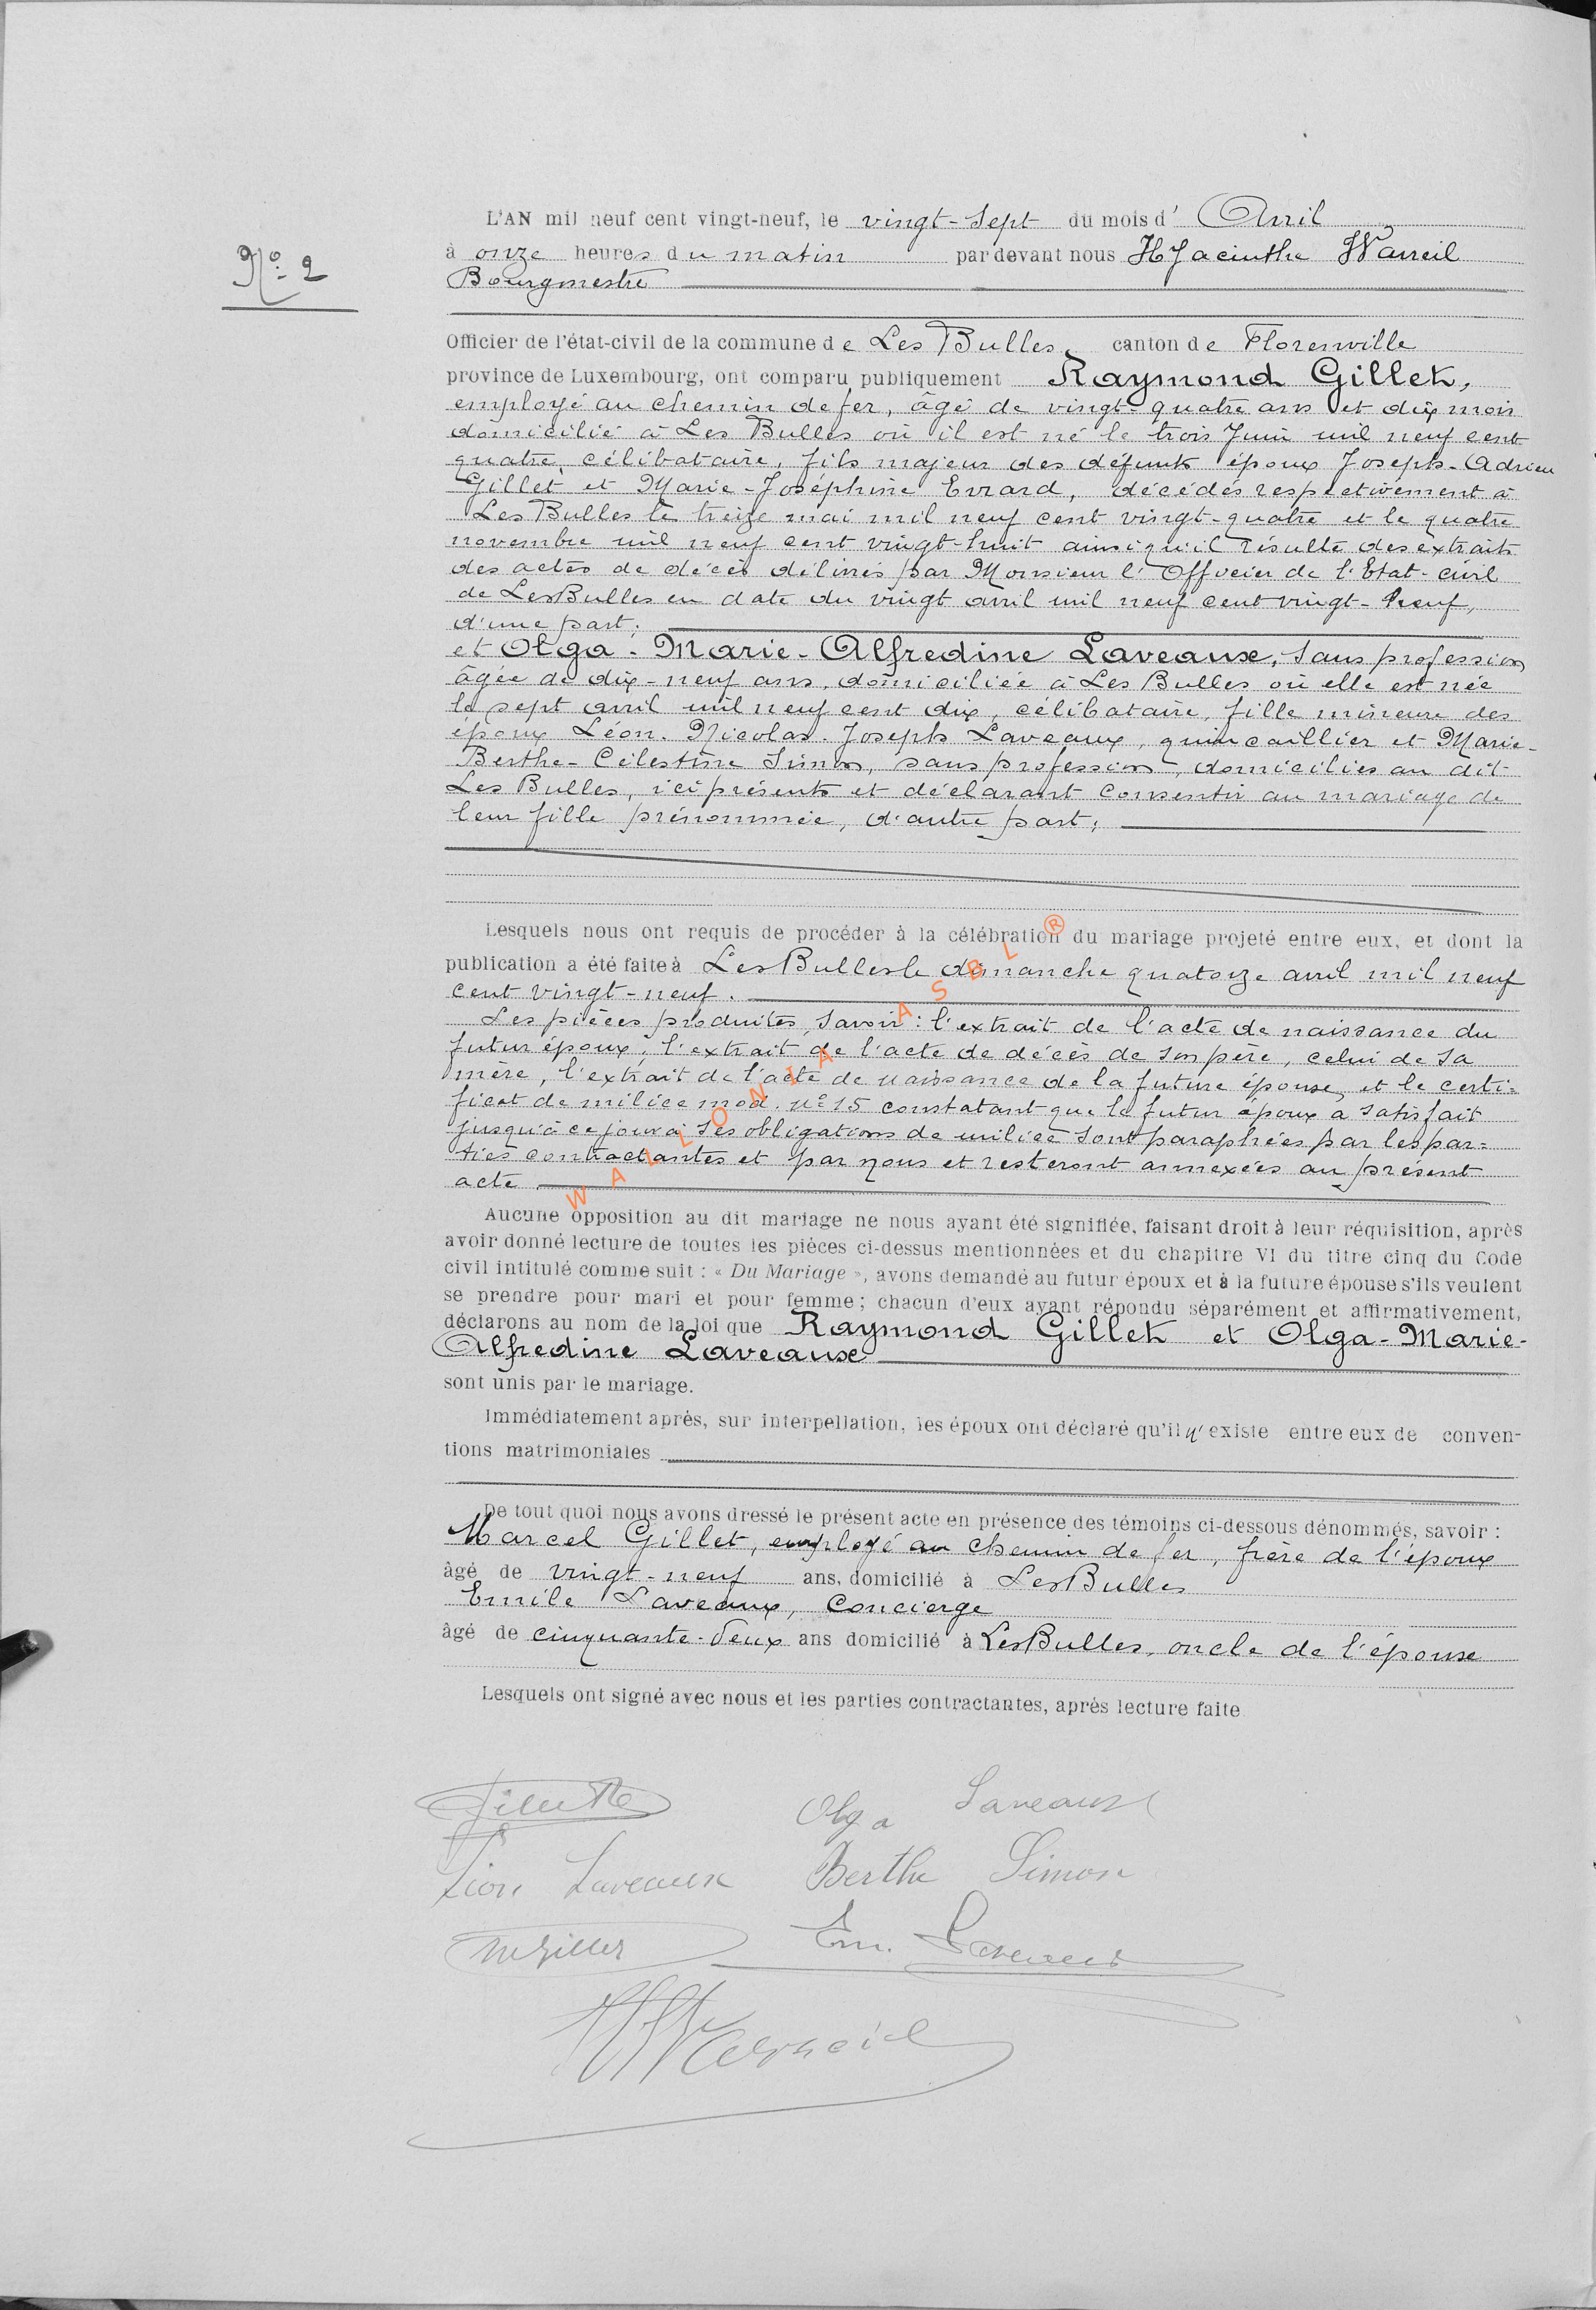 N° 2
L'AN mil neuf cent vingt-neuf, le vingt-sept du mois d' Avril
à onze heures du matin par devant nous HJacinthe Warreil
Bourgmestre
Officier de l'état-civil de la commune de Les Bulles, canton de Florenville
province de Luxembourg, ont comparu publiquement Raymond Gillet,
employé au chemin de fer, âgé de vingt-quatre ans et dix mois
domicilié à Les Bulles où il est né le trois Juin mil neuf cent
quatre, célibataire, fils majeur des défunts époux Joseph-Adrien
Gillet et Marie-Joséphine Evrard, décédés respectivement à
Les Bulles le treize mai mil neuf cent vingt-quatre et le quatre
novembre mil neuf cent vingt-huit ainsi qu'il résulte des extraits
des actes de décès délivrés par Monsieur l'Officier de l'Etat-civil
de Les Bulles en date du vingt avril mil neuf cent vingt-neuf,
d'une part;
et Olga-Marie-Alfredine Laveaux, sans profession
âgée de dix-neuf ans, domiciliée à Les Bulles où elle est née
le sept avril mil neuf cent dix, célibataire, fille mineure des
époux Léon-Nicolas-Joseph Laveaux, quincaillier et Marie-
Berthe-Célestine Simon, sans profession, domiciliés au dit
Les Bulles, ici présents et déclarant consentir au mariage de
leur fille prénommée, d'autre part;
Lesquels nous ont requis de procéder à la célébration du mariage projeté entre eux, et dont la
publication a été faite à Les Bulles le dimanche quatorze avril mil neuf
cent vingt-neuf.
Les pièces produites, savoir: l'extrait de l'acte de naissance du
futur époux, l'extrait de l'acte de décès de son père, celui de sa
mère, l'extrait de l'acte de naissance de la future épouse, et le certi=
ficat de milice mod. n° 15 constatant que le futur époux a satisfait
jusqu'à ce jour à ses obligations de milice sont paraphées par les par=
ties contractantes et par nous et resteront annexées au présent
acte
WALLONIA ASBL ®
Aucune opposition au dit mariage ne nous ayant été signifiée, faisant droit à leur réquisition, après
avoir donné lecture de toutes les pièces ci-dessus mentionnées et du chapitre VI du titre cinq du Code
civil intitulé comme suit : « Du Mariage », avons demandé au futur époux et à la future épouse s'ils veulent
se prendre pour mari et pour femme; chacun d'eux ayant répondu séparément et affirmativement,
déclarons au nom de la loi que Raymond Gillet et Olga-Marie-
Alfredine Laveaux
sont unis par le mariage.
Immédiatement après, sur interpellation, les époux ont déclaré qu'il n'existe entre eux de conven-
tions matrimoniales
De tout quoi nous avons dressé le présent acte en présence des témoins ci-dessous dénommés, savoir :
Marcel Gillet, employé au chemin de fer, frère de l'époux
âgé de vingt-neuf ans, domicilié à Les Bulles
Emile Laveaux, concierge
âgé de cinquante-deux ans domicilié à Les Bulles, oncle de l'épouse
Lesquels ont signé avec nous et les parties contractantes, après lecture faite
Olga Laveaux
Léon Laveaux Berthe Simon
MGillet Em. Laveaux
HWarreil